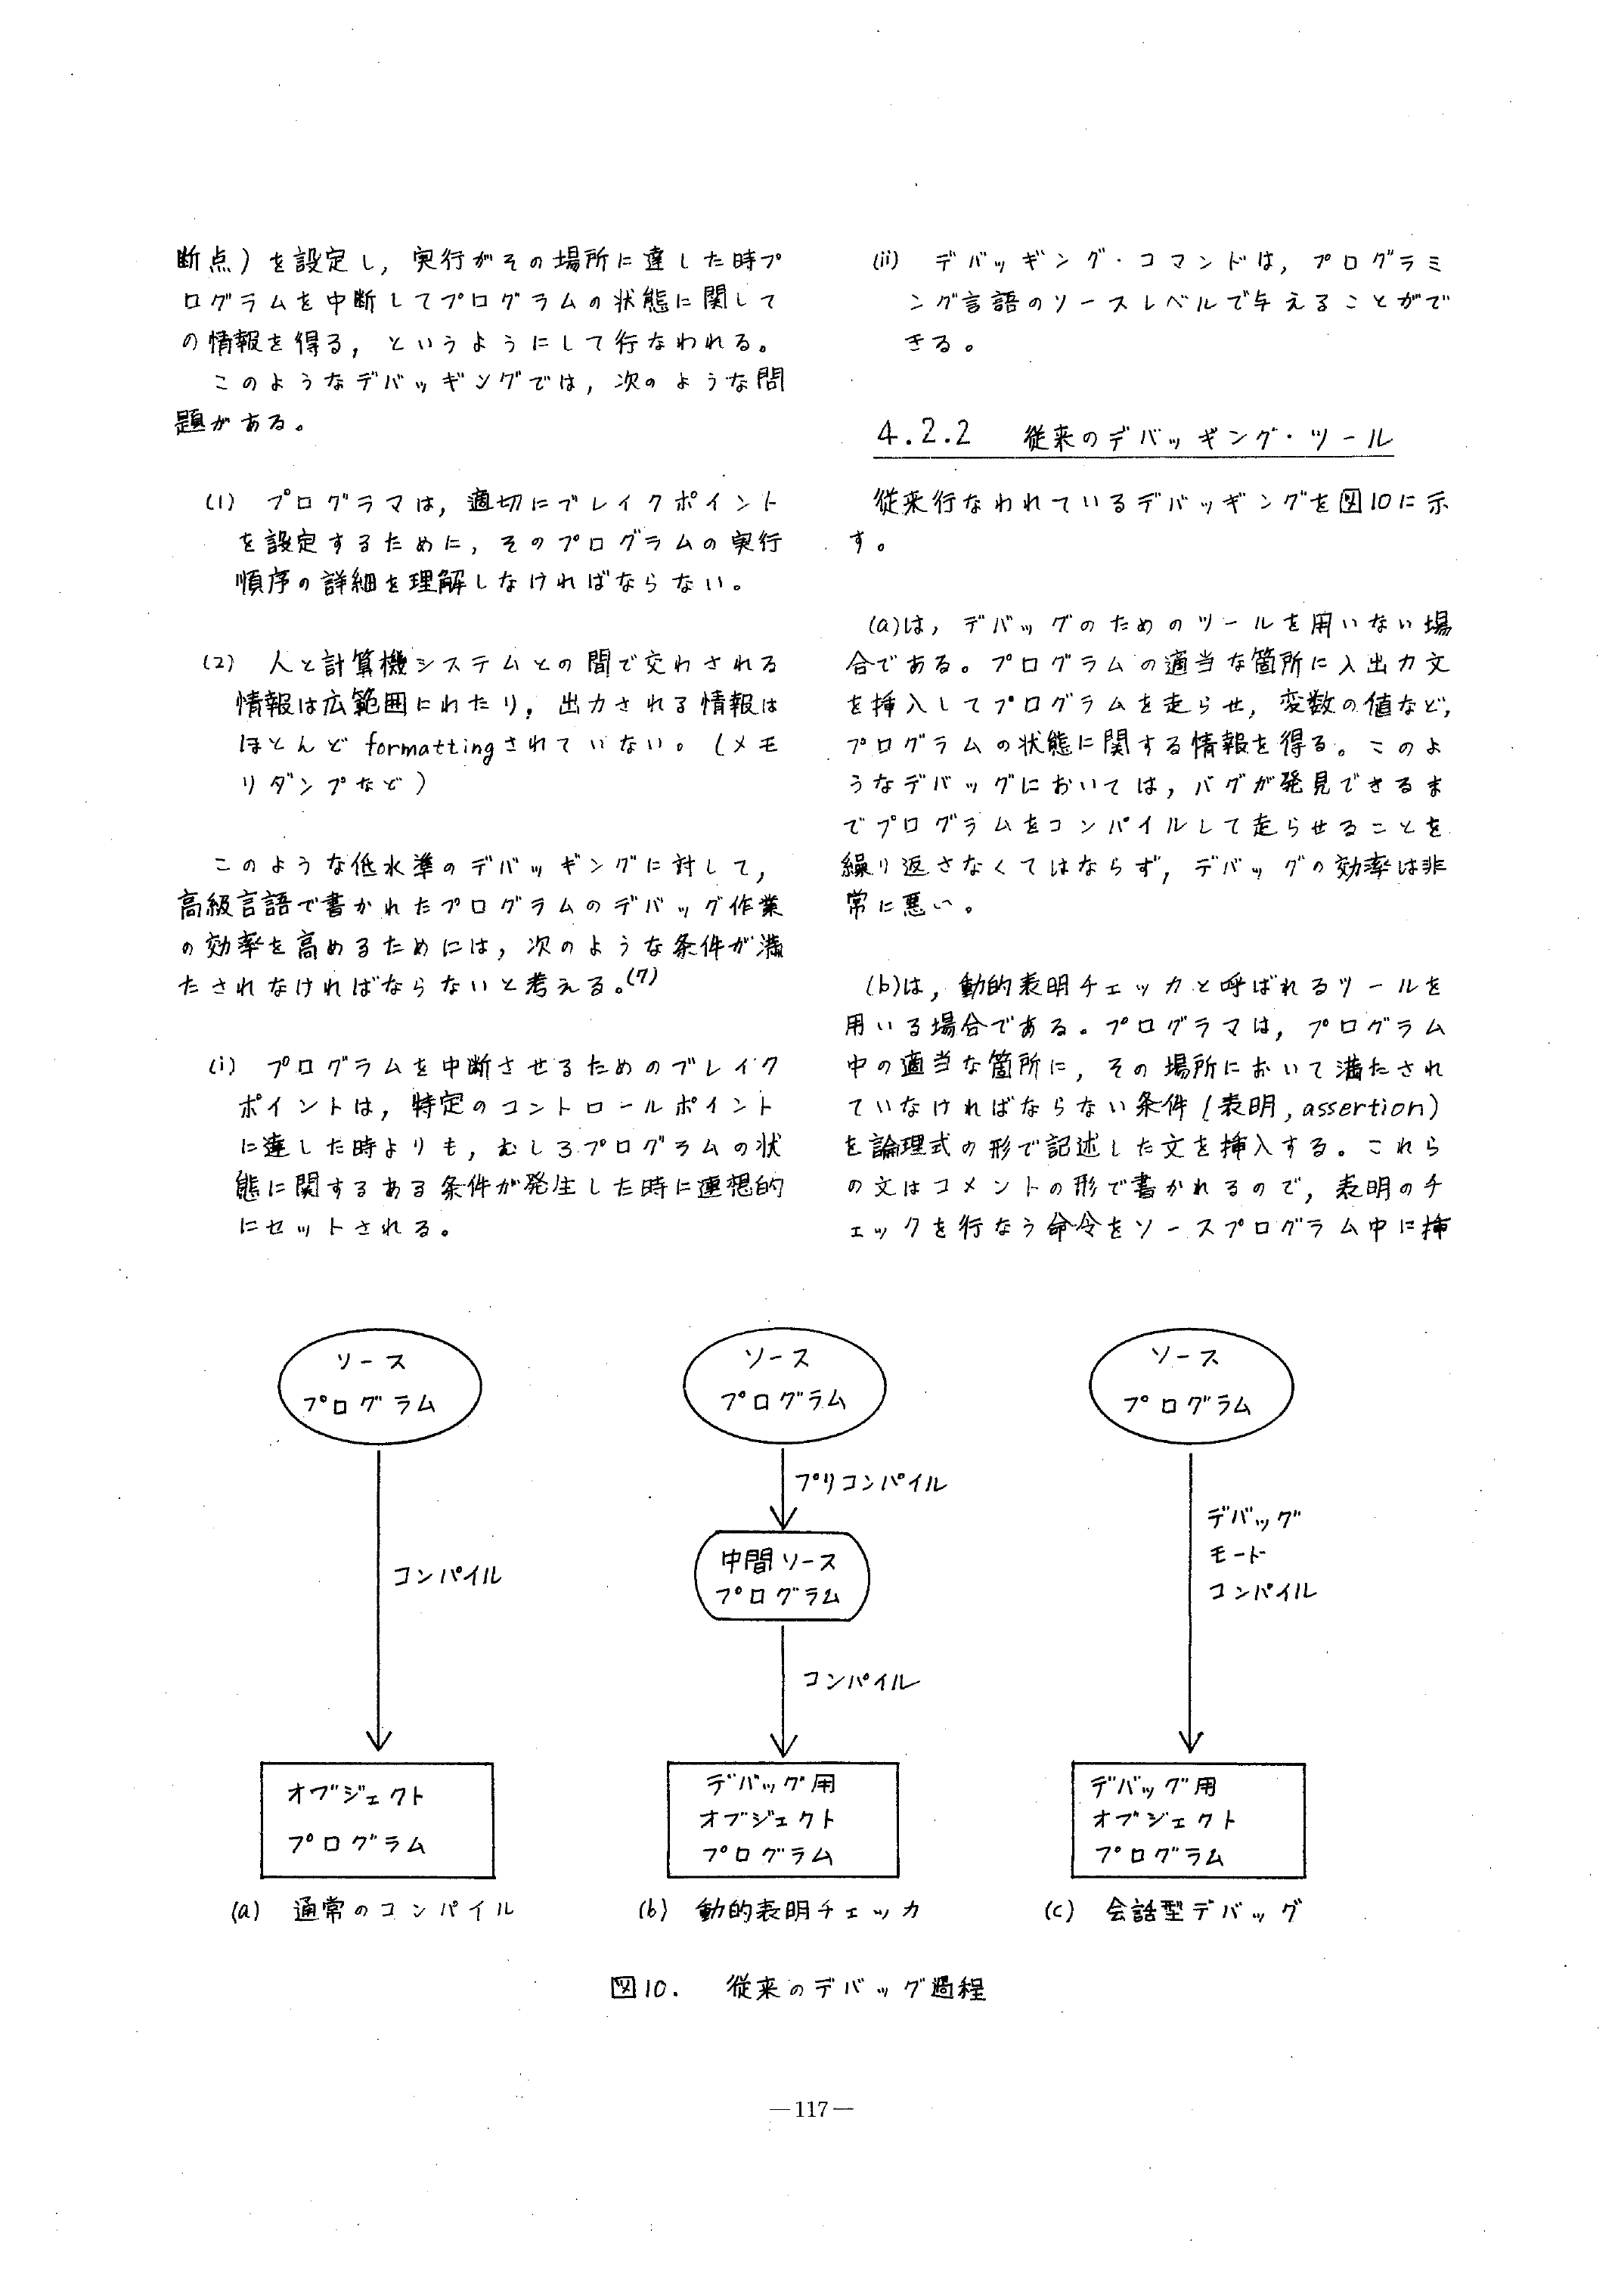 断点)を設定し,実行がその場所に達した時プ
ログラムを中断してプログラムの状態に関して
の情報を得る,というようにして行なわれる。
このようなデバッギングでは,次のような問
題がある。
(1) プログラマは,適切にブレイクポイント
を設定するために,そのプログラムの実行
順序の詳細を理解しなければならない。
(2) 人と計算機システムとの間で交わされる
情報は広範囲にわたり,出力される情報は
ほとんどformattingされていない。(メモ
リダンプなど)
このような低水準のデバッギングに対して,
高級言語で書かれたプログラムのデバッグ作業
の効率を高めるためには,次のような条件が満
たされなければならないと考える。(7)
(i) プログラムを中断させるためのブレイク
ポイントは,特定のコントロールポイント
に達した時よりも,むしろプログラムの状
態に関するある条件が発生した時に連想的
にセットされる。
(ii) デバッギング・コマンドは,プログラミ
ング言語のソースレベルで与えることがで
きる。
4.2.2 従来のデバッギング・ツール
従来行なわれているデバッギングを図10に示
す。
(a)は,デバッグのためのツールを用いない場
合である。プログラムの適当な箇所に入出力文
を挿入してプログラムを走らせ,変数の値など,
プログラムの状態に関する情報を得る。このよ
うなデバッグにおいては,バグが発見できるま
でプログラムをコンパイルして走らせることを
繰り返さなくてはならず,デバッグの効率は非
常に悪い。
(b)は,動的表明チェッカと呼ばれるツールを
用いる場合である。プログラマは,プログラム
中の適当な箇所に,その場所において満たされ
ていなければならない条件(表明,assertion)
を論理式の形で記述した文を挿入する。これら
の文はコメントの形で書かれるので,表明のチ
ェックを行なう命令をソースプログラム中に挿
ソース
プログラム
コンパイル
オブジェクト
プログラム
(a) 通常のコンパイル
ソース
プログラム
プリコンパイル
中間ソース
プログラム
コンパイル
デバッグ用
オブジェクト
プログラム
(b) 動的表明チェッカ
ソース
プログラム
デバッグ
モード
コンパイル
デバッグ用
オブジェクト
プログラム
(c) 会話型デバッグ
図10. 従来のデバッグ過程
—117—